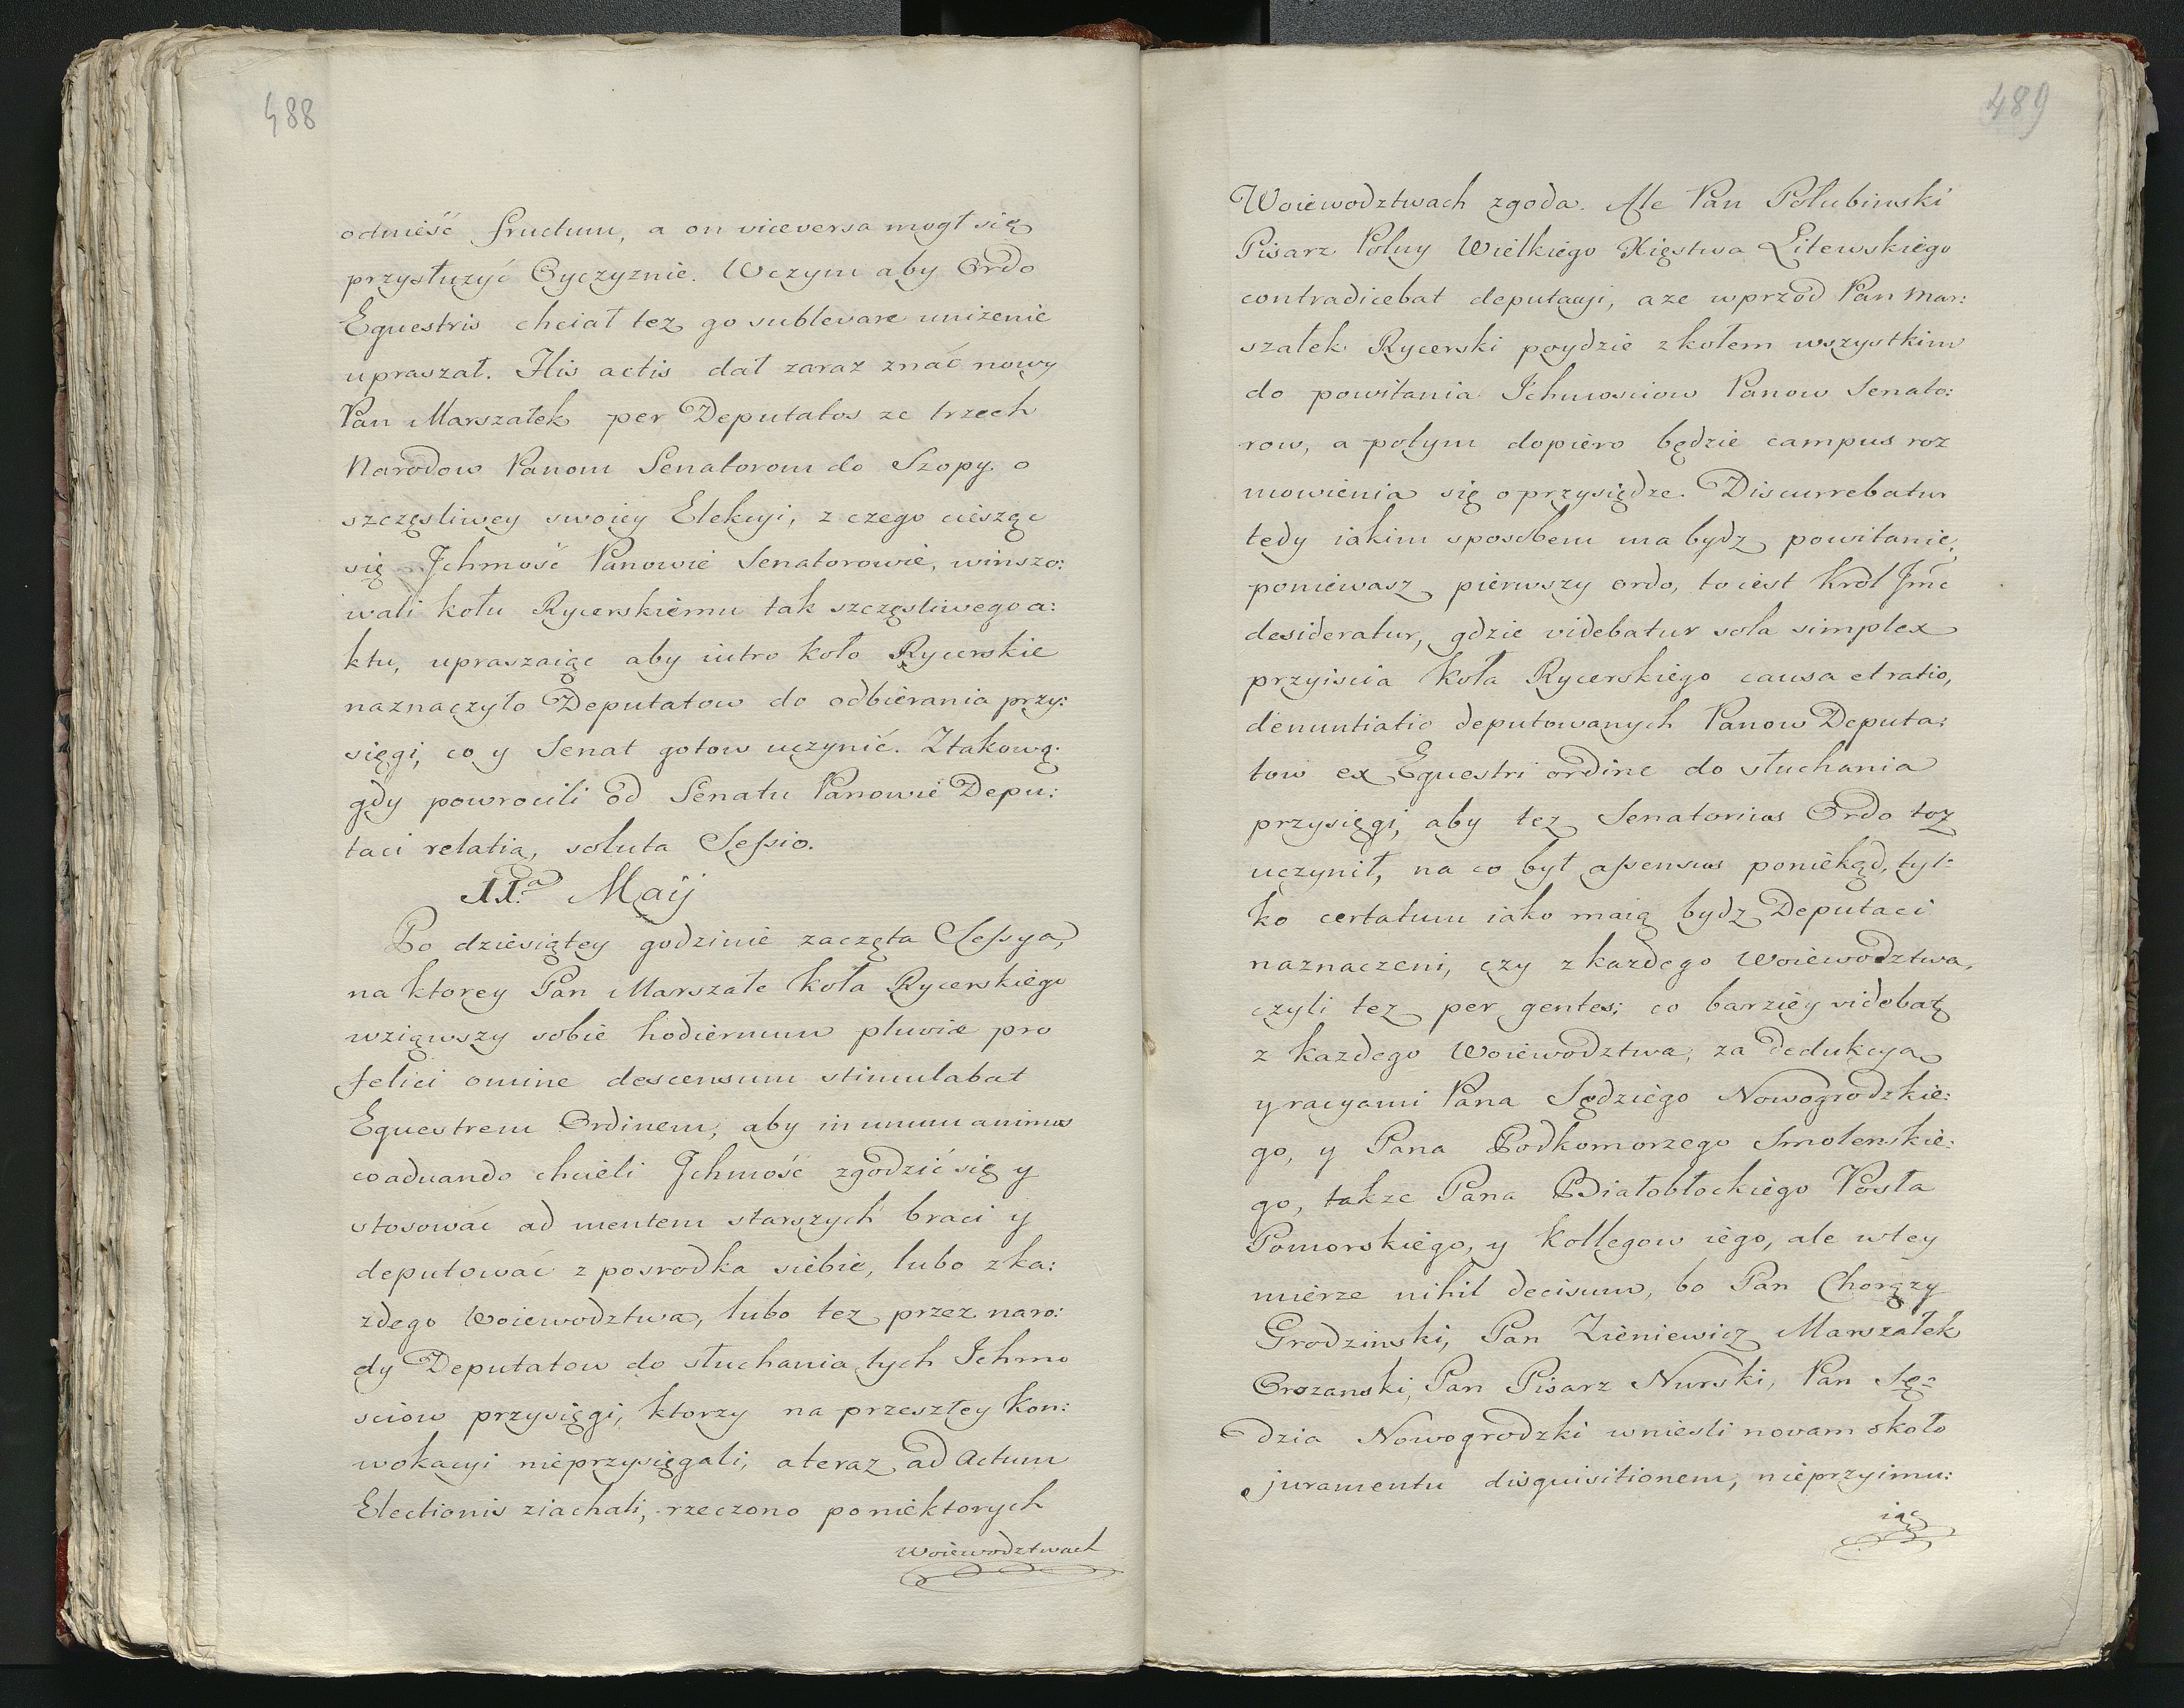 488
odnieść fructum, a on viceversa mogł się
przysłuzyć Oyczyznie. Wczym aby Ordo
Equestris chciał tez go sublevare unizenie
upraszał. His actis dał zaraz znać nowy
Pan Marszałek per Deputatos ze trzech
Narodow Panom Senatorom do Szopy o
szczęsliwey swoiey Elekcyi, z czego ciesząc
się Jchmość Panowie Senatorowie, winszo:
wali kołu Rycerskiemu tak szczęsliwego a:
ktu, upraszaiąc aby iutro koło Rycerskie
naznaczyło Deputatow do odbierania przy:
sięgi, co y Senat gotow uczynić. Ztakową
gdy powrocili od Senatu Panowie Depu:
taci relatią, soluta Sessio.
11.a Maij
Po dziesiątey godzinie zaczęta Sessya,
na ktorey Pan Marszałe koła Rycerskiego
wziąwszy sobie hodiernum pluviæ pro
felici omine descensum stimulabat
Equestrem Ordinem, aby in unum animos
coaduando chcieli Jchmość zgodzić się y
stosować ad mentem starszych braci y
deputować z posrodka siebie, lubo zka:
zdego Woiewodztwa, lubo tez przez naro:
dy Deputatow do słuchania tych Jchmo
sciow przysięgi, ktorzy na przeszłey kon:
wokacyi nieprzysięgali, a teraz ad Actum
Electionis ziachali, rzeczono po niektorych
Woiewodztwach
489
Woiewodztwach zgoda. Ale Pan Połubinski
Pisarz Polny Wielkiego Xięstwa Litewskiego
contradicebat deputacyi, aze wprzod Pan Mar:
szałek Rycerski poydzie z kołem wszystkim
do powitania Ichmosciow Panow Senato:
row, a potym dopiero będzie campus roz
mowienia się o przysiędze. Discurrebatur
tedy iakim sposobem ma bydz powitanie,
poniewasz pierwszy ordo, to iest Krol Jmć
desideratur, gdzie videbatur sola simplex
przyiscia koła Rycerskiego causa et ratio,
denuntiatio deputowanych Panow Deputa:
tow ex Equestri ordine do słuchania
przysięgi, aby tez Senatorius Ordo toz
uczynił, na co był assensus poniekąd, tyl:
ko certatum iako maią bydz Deputaci
naznaczeni, czy z kazdego Woiewodztwa,
czyli tez per gentes; co barziey videbat
z kazdego Woiewodztwa, za dedukcyą
y racyami Pana Sędziego Nowogrodzkie:
go, y Pana Podkomorzego Smolenskie:
go, takze Pana Białobłockiego Posła
Pomorskiego, y kollegow iego, ale wtey
mierze nihil decisum, bo Pan Chorązy
Grodzinski, Pan Zieniewicz Marszałek
Orszanski, Pan Pisarz Nurski, Pan Sę:
dzia Nowogrodzki wniesli novam około
juramentu disquisitionem, nieprzyimu:
iąc